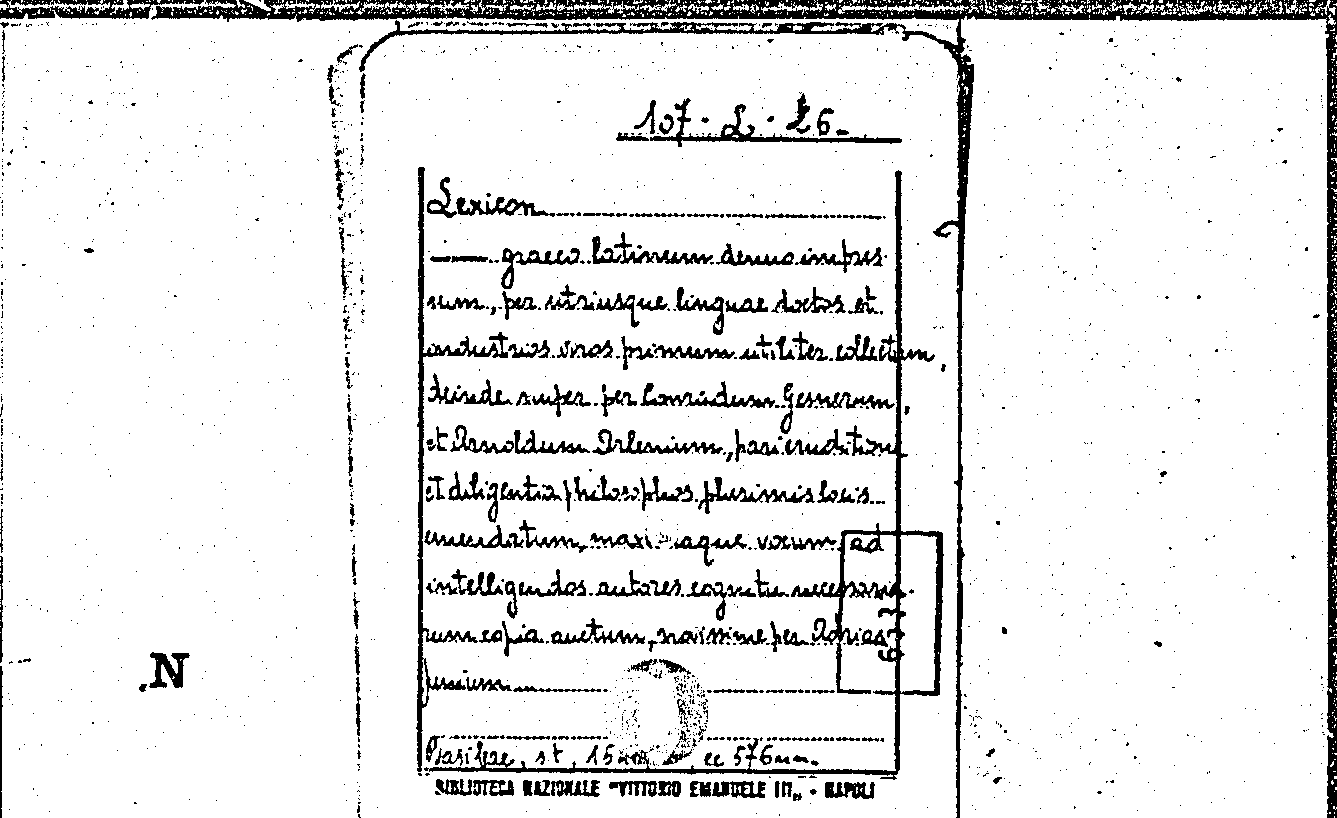 107 · L · 26.
Lexicon
graeco latinum denuo impres
sum, per utriusque linguae doctos et
industrios viros primum utiliter collectum,
deinde nuper per Conradum Gesnerum,
et Arnoldum Arlenium, pari eruditione
et diligentia philosophos, plurimis locis
emendatum, maximaque vocum ad
intelligendos autores cognitu necessaria-
rum copia auctum, novissime per Adrian
Junium
Basileae, s. t., 15 cc 576 nn.
BIBLIOTECA NAZIONALE "VITTORIO EMANUELE III„ - NAPOLI
.N